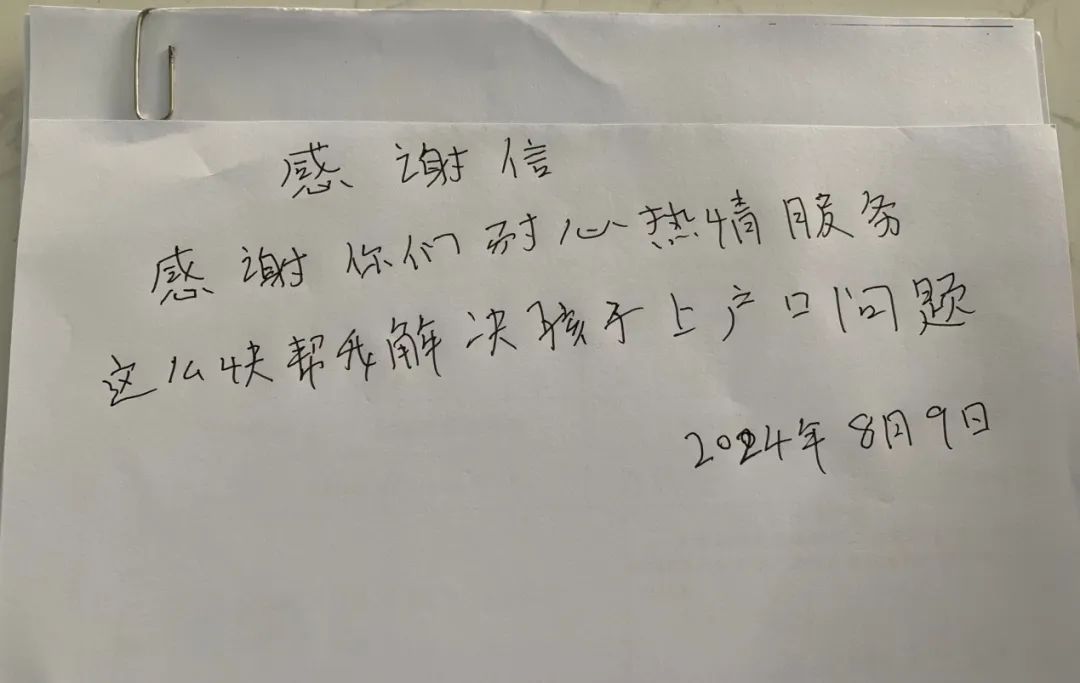 感谢信
感谢你们耐心热情服务
这么快帮我解决孩子上户口问题
2024年8月9日